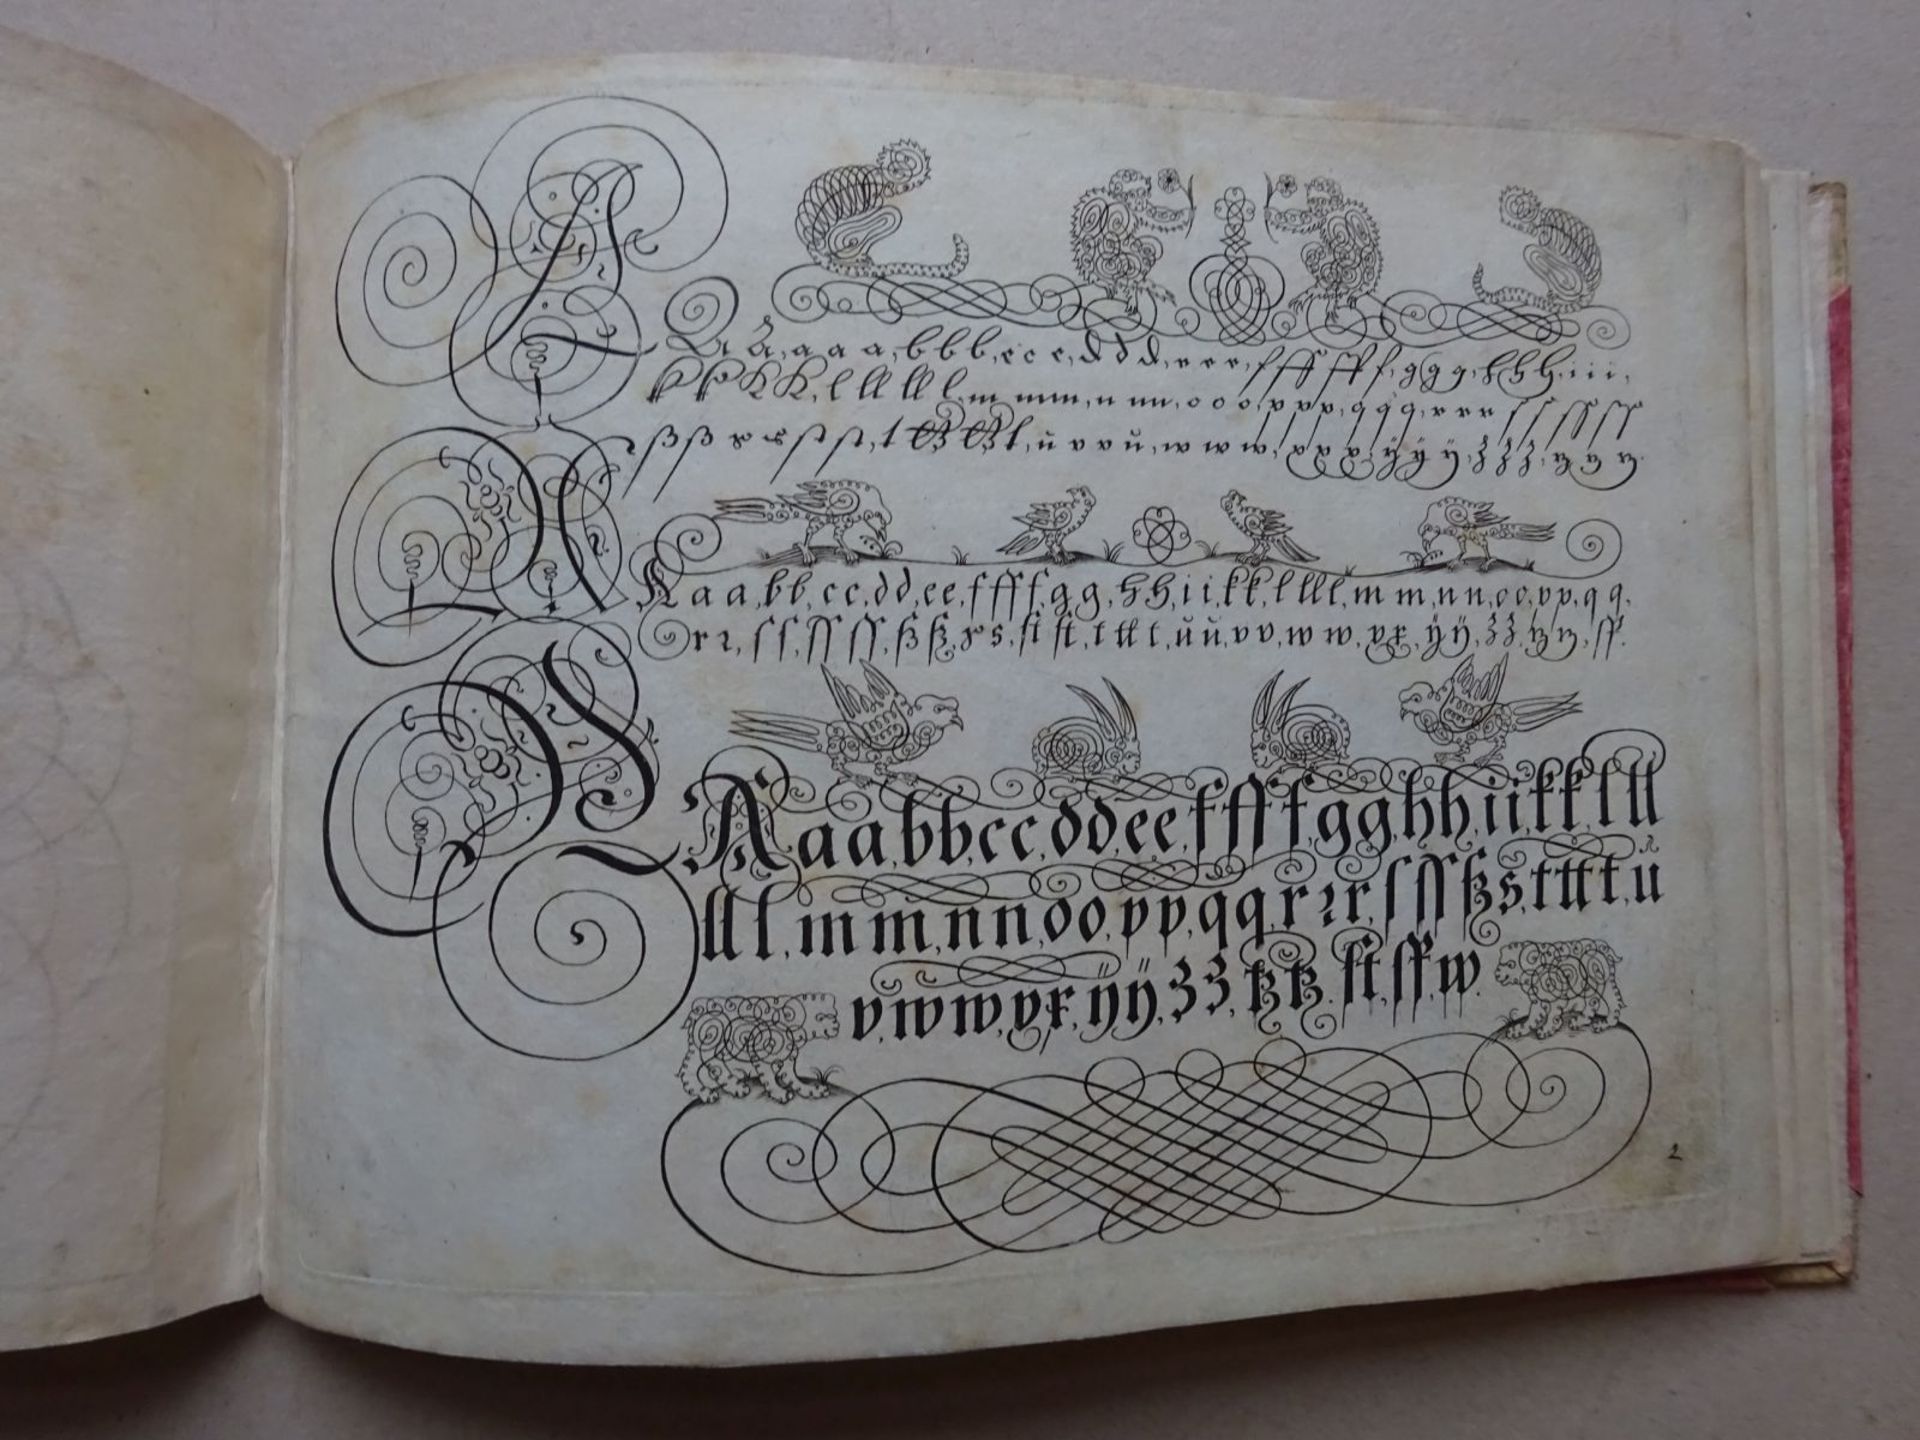 A a, a a a, b b b, c c c, d d d, e e e, f ff ff f, g g g, h h h, i i i,
k k k k, l ll ll l, m mm, n nn, o o o, p p p, q q q, r r r ſ ſ ſſ ſſ
ß ß s s st st, t tz tz t, ü v v ü, w w w, x x x, ÿ ÿ ÿ, z z z, tz tz tz.
A a a, b b, c c, d d, e e, f ff f, g g, h h, i i, k k, l ll l, m m, n n, o o, p p, q q,
r ꝛ, ſ ſ, ſſ ſſ, ß ß, s s, ſt ſt, t tt t, ŭ ŭ, v v, w w, x x, ÿ ÿ, z z, tz tz, ſſ.
A a a, b b, c c, d d, e e, f ff f, g g, h h, i i, k k, l ll
ll l, m m, n n, o o, p p, q q, r ꝛ r, ſ ſſ ß s, t tt t, u
v, w w, x x, ÿ ÿ, z z, tz tz, ſt, ſſ, w.
2